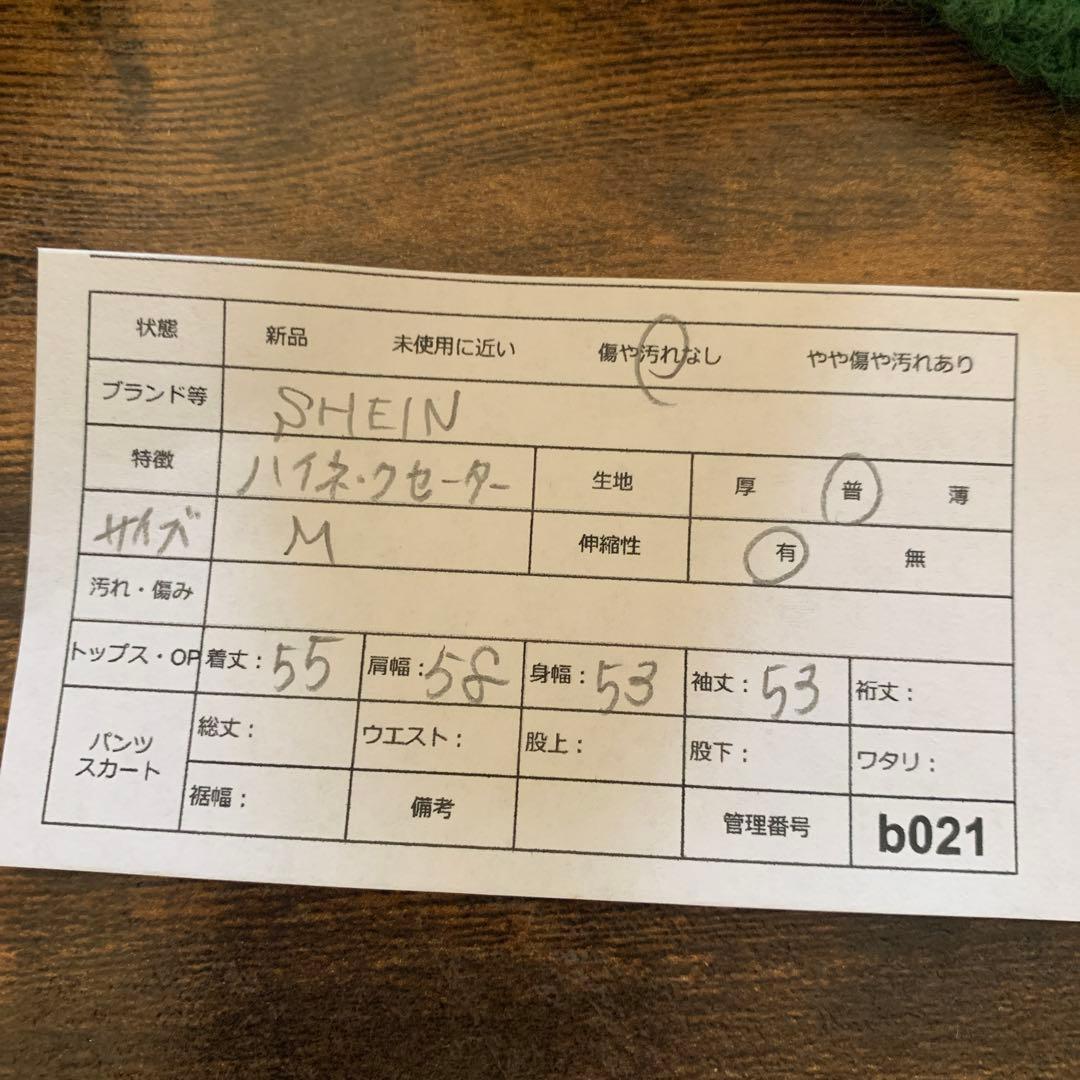 状態 新品 未使用に近い 傷や汚れなし やや傷や汚れあり
ブランド等 SHEIN
特徴 ハイネックセーター 生地 厚 普 薄
サイズ M 伸縮性 有 無
汚れ・傷み
トップス・OP 着丈：55 肩幅：58 身幅：53 袖丈：53 裄丈：
パンツ
スカート
総丈： ウエスト： 股上： 股下： ワタリ：
裾幅： 備考 管理番号 b021